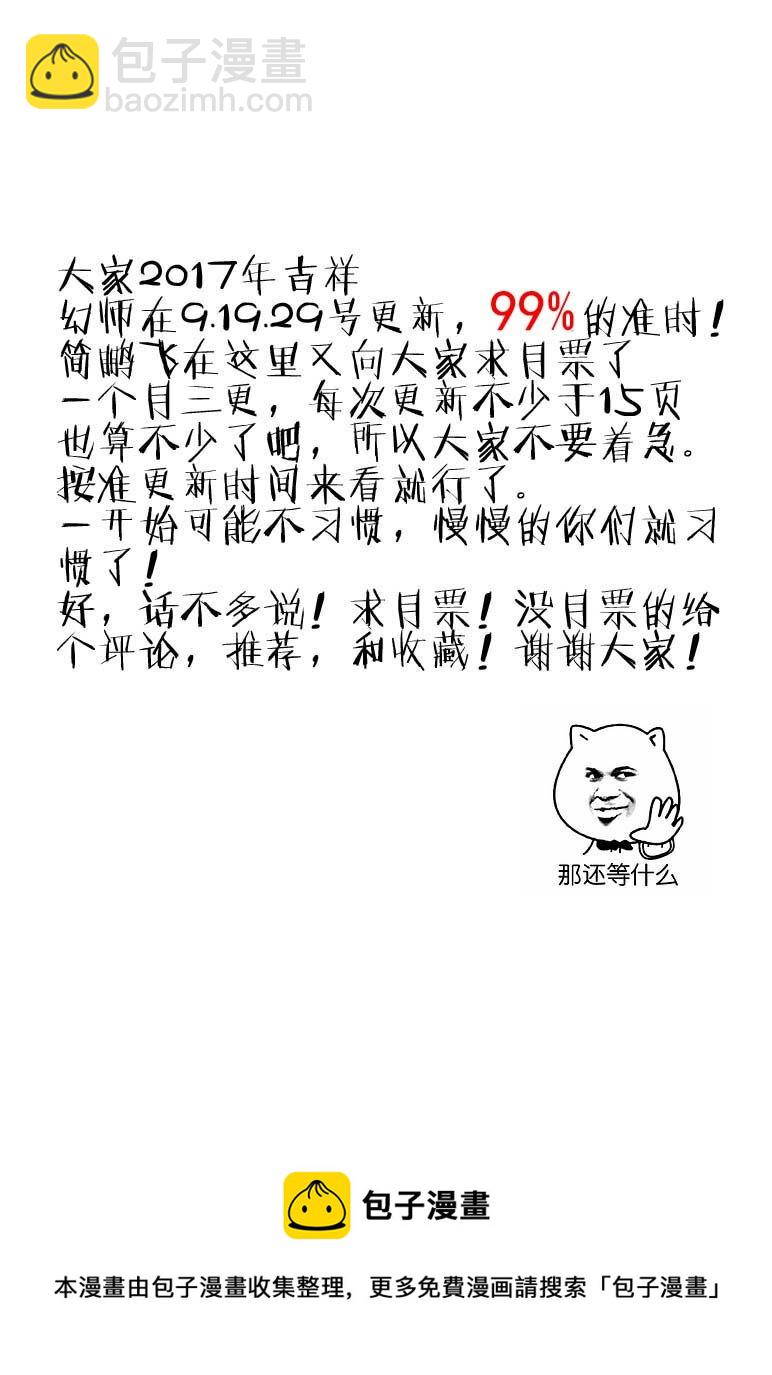 包子漫畫
baozimh.com
大家2017年吉祥
幻师在9.19.29号更新，99%的准时！
简鹏飞在这里又向大家求月票了
一个月三更，每次更新不少于15页
也算不少了吧，所以大家不要着急。
按准更新时间来看就行了。
一开始可能不习惯，慢慢的你们就习
惯了！
好，话不多说！求月票！没月票的给
个评论，推荐，和收藏！谢谢大家！
那还等什么
包子漫畫
本漫畫由包子漫畫收集整理，更多免費漫画請搜索「包子漫畫」